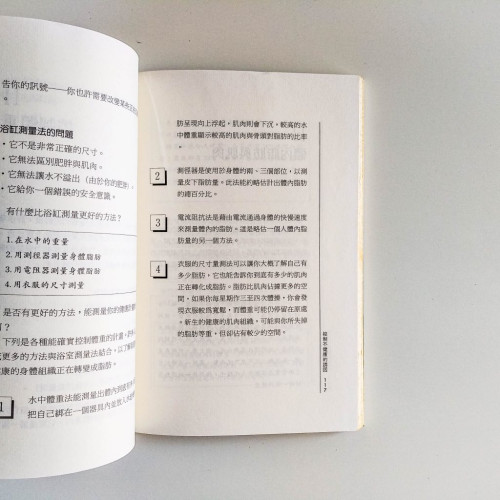 告你的訊號——你也許需要改變某
。
浴缸測量法的問題
・它不是非常正確的尺寸。
・它無法區別肥胖與肌肉。
・它無法讓水不溢出（由於你的肥胖）。
・它給你一個錯誤的安全意識。
有什麼比浴缸測量更好的方法？
1.在水中的重量
2.用測徑器測量身體脂肪
3.用電阻器測量身體脂肪
4.用衣服的尺寸測量
是否有更好的方法，能測量你的健康
嗎？
下列是各種能確實控制體重的計畫，
或更多的方法與浴室測量法結合，以了解
康的身體組織正在轉變成脂肪。
1
水中體重法能測量出體內到底有多
把自己綁在一個器具內並放入水
肪呈現向上浮起，肌肉則會下沉。較高的水
中體重顯示較高的肌肉與骨頭對脂肪的比率
。
2
測徑器是使用於身體的兩、三個部位，以測
量皮下脂肪量。此法能約略估計出體內脂肪
的總百分比。
3
電流阻抗法是藉由電流通過身體的快慢速度
來測量體內的脂肪。這是略估一個人體內脂
肪量的另一個方法。
4
衣服的尺寸量測法可以讓你大概了解自己有
多少脂肪，它也能告訴你到底有多少的肌肉
正在轉化成脂肪。脂肪比肌肉佔據更多的空
間。如果你每星期作三至四次體操，你會發
現衣服較爲寬鬆，而體重可能仍停留在原處
。新生的健康的肌肉組織，可能與你所失掉
的脂肪等重，但卻佔有較少的空間。
117